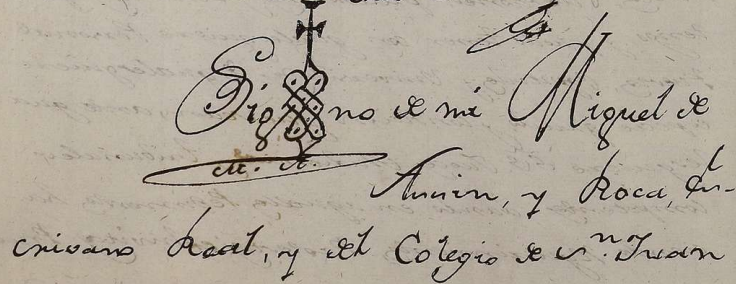 Sig no de mi Miguel de
M. A.
y Roca, Es-
crivano Real, y del Colegio de Sn. Juan